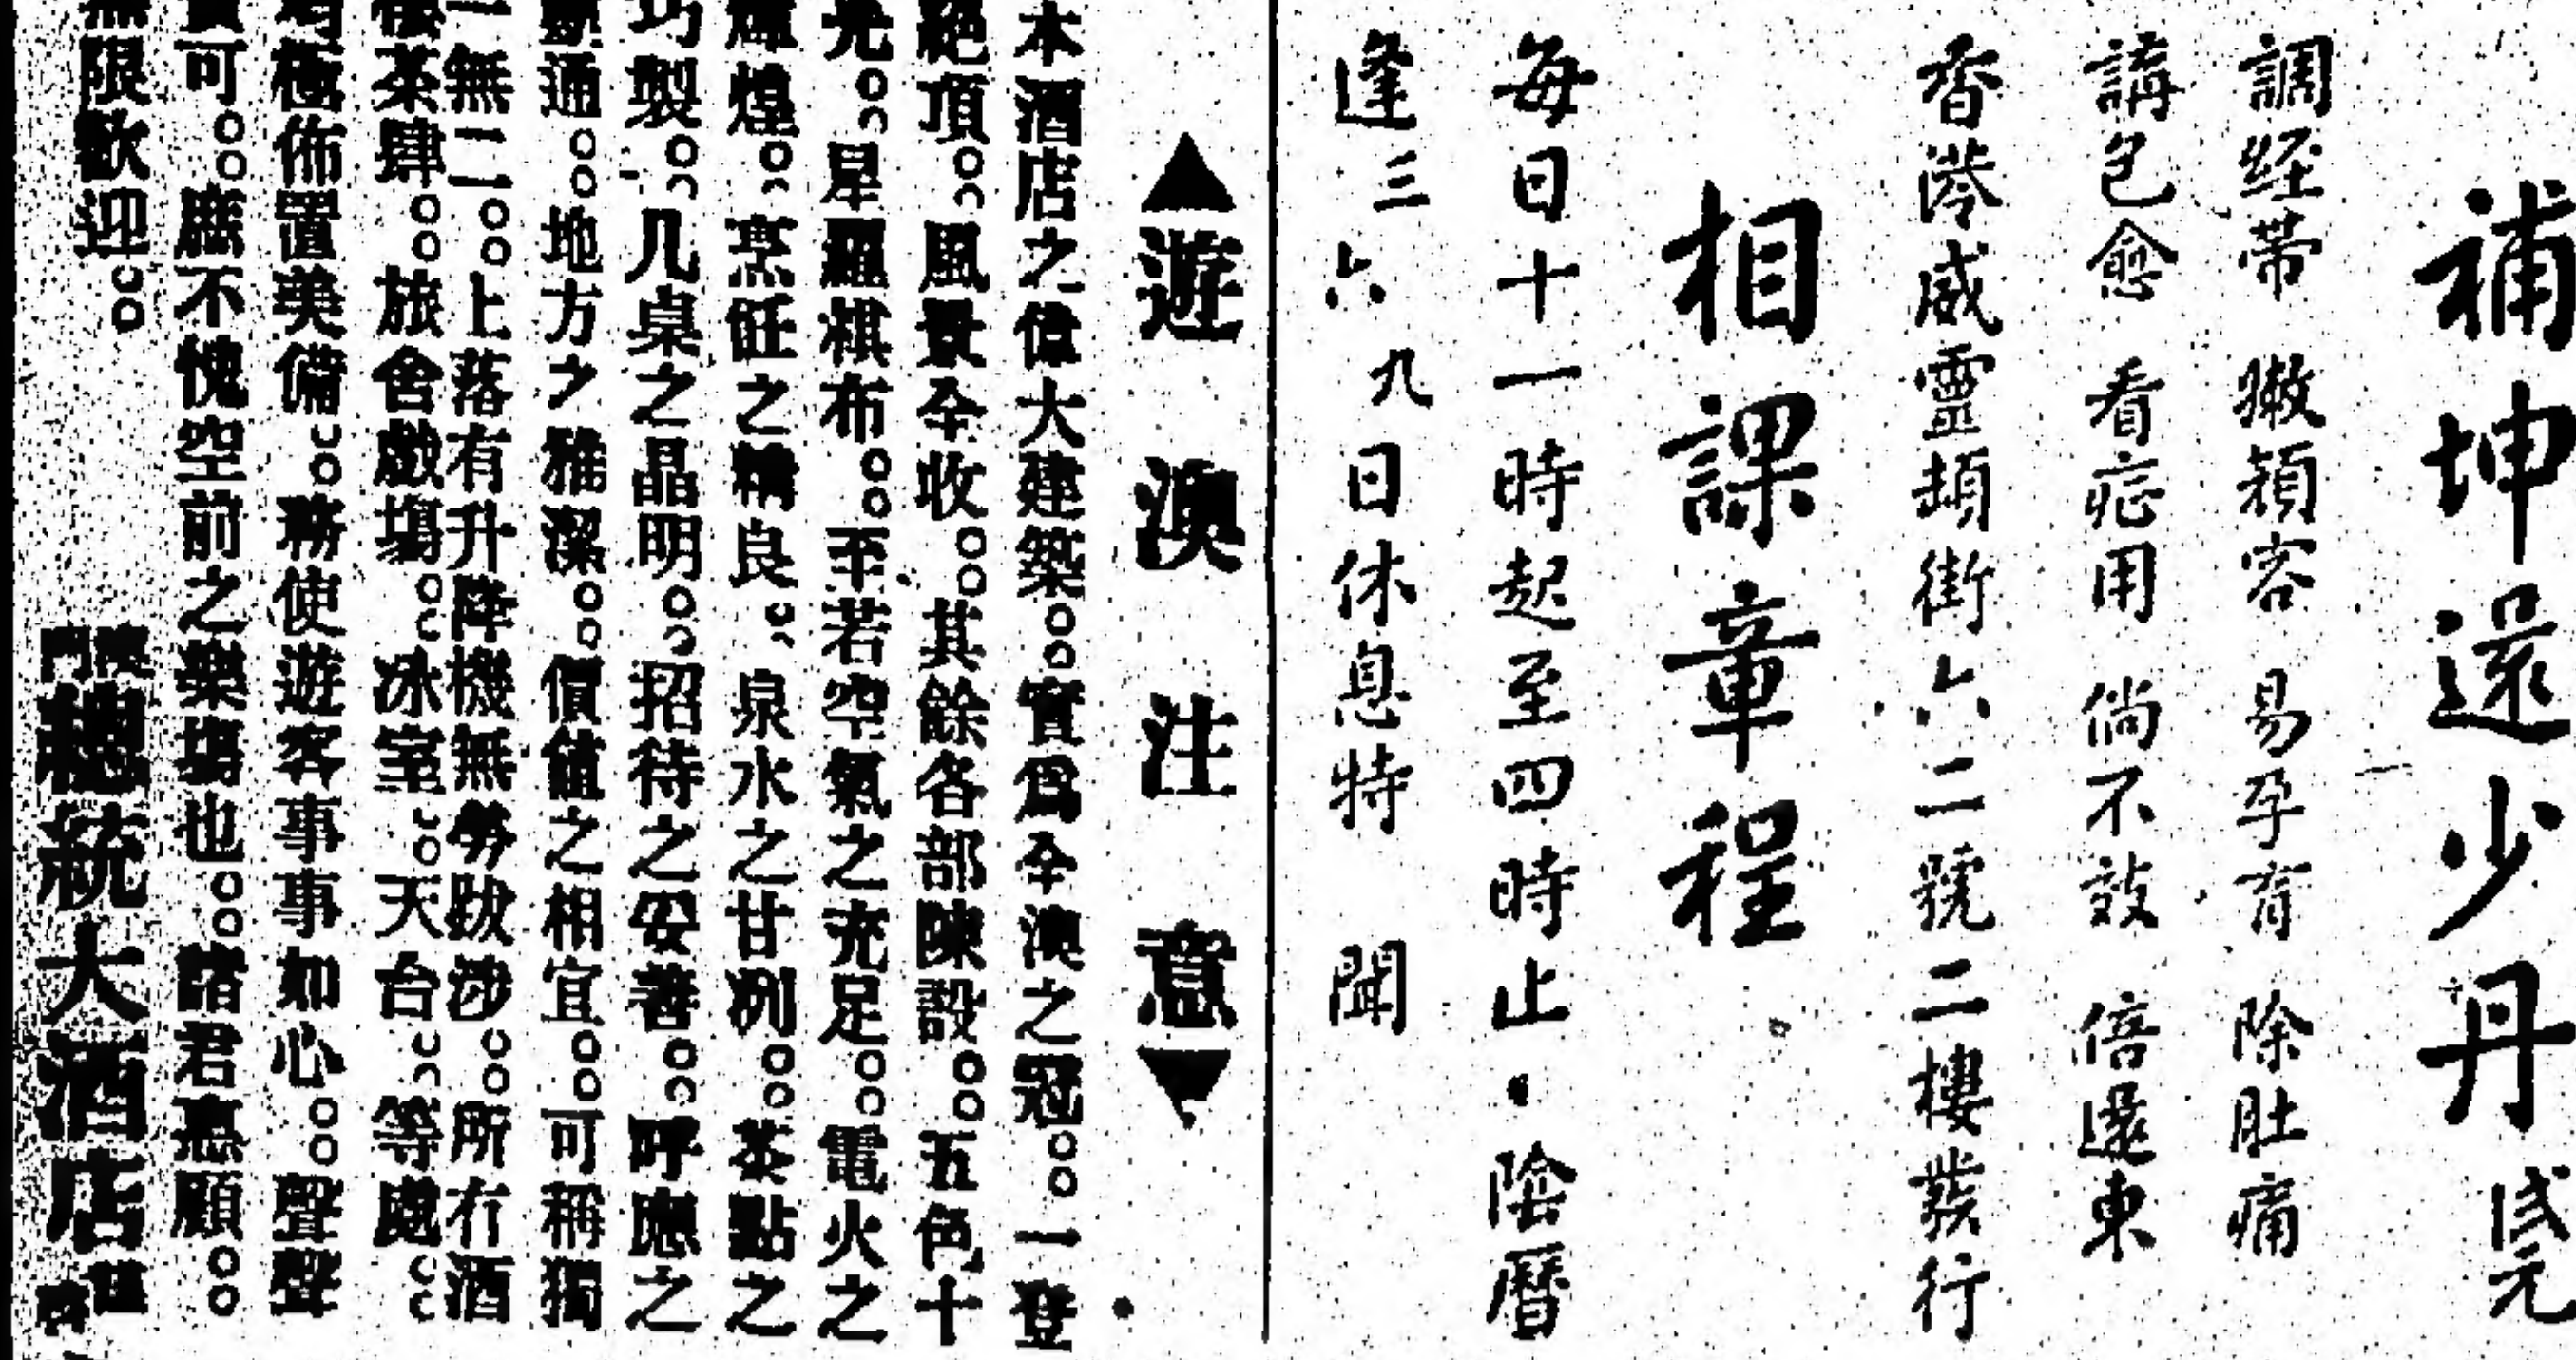 補坤還少丹
調經帶 嫩顏容 易孕育 除肚痛
講包愈 看症用 倘不效 倍還東
香港威靈頓街六二號二樓發行
相課章程
每日十一時起至四時止·陰曆
逢三六九日休息特 聞
▲遊澳注意▼
本酒店之偉大建築。。實爲全澳之冠。。一登
絕頂。。風景全收。。其餘各部陳設。。五色十
光。。星羅棋布。。至若空氣之充足。。電火之
輝煌。。烹飪之精良。。泉水之甘冽。。茶點之
巧製。。几桌之晶明。。招待之妥善。。呼應之
靈通。。地方之雅潔。。價值之相宜。。可稱獨
一無二。。上落有升降機無勞跋涉。。所有酒
樓茶肆。。旅舍戲塲。。冰室。。天台。。等處。。
均極佈置美備。。務使遊客事事如心。。聲聲
可。。應不愧空前之樂塲也。。諸君惠顧。。
無限歡迎。。
澳門總統大酒店